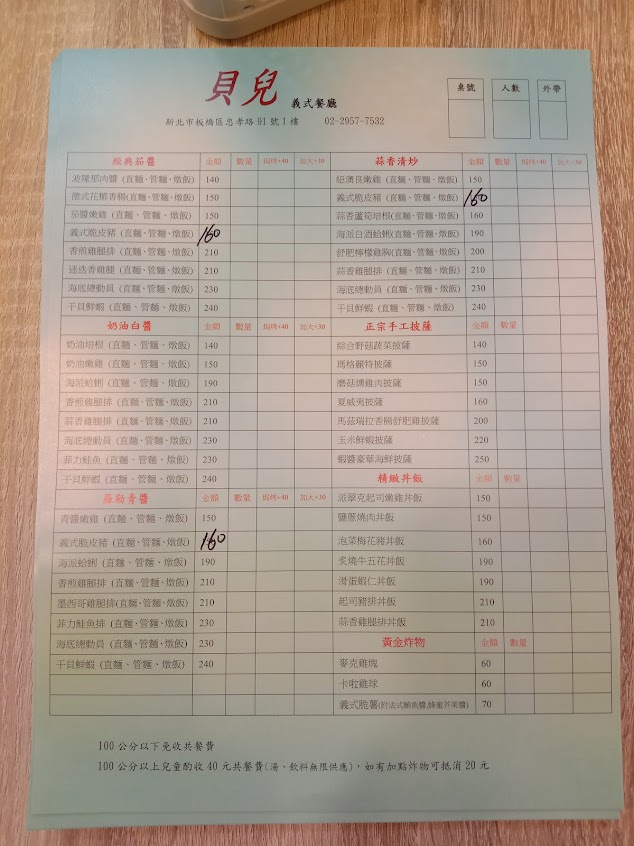 貝兒 義式餐廳
新北市板橋區忠孝路91號1樓 02-2957-7532
桌號 人數 外帶
經典茄醬 金額 數量 焗烤+40 加大+30
波隆那肉醬 (直麵、管麵、燉飯) 140
德式花椰香腸(直麵、管麵、燉飯) 150
茄醬嫩雞 (直麵、管麵、燉飯) 150
義式脆皮豬 (直麵、管麵、燉飯) 160
香煎雞腿排 (直麵、管麵、燉飯) 210
迷迭香雞腿 (直麵、管麵、燉飯) 210
海底總動員 (直麵、管麵、燉飯) 230
干貝鮮蝦 (直麵、管麵、燉飯) 240
奶油白醬 金額 數量 焗烤+40 加大+30
奶油培根 (直麵、管麵、燉飯) 140
奶油嫩雞 (直麵、管麵、燉飯) 150
海派蛤蜊 (直麵、管麵、燉飯) 190
香煎雞腿排 (直麵、管麵、燉飯) 210
蒜香雞腿排 (直麵、管麵、燉飯) 210
海底總動員 (直麵、管麵、燉飯) 230
菲力鮭魚 (直麵、管麵、燉飯) 230
干貝鮮蝦 (直麵、管麵、燉飯) 240
羅勒青醬 金額 數量 焗烤+40 加大+30
青醬嫩雞 (直麵、管麵、燉飯) 150
義式脆皮豬 (直麵、管麵、燉飯) 160
海派蛤蜊 (直麵、管麵、燉飯) 190
香煎雞腿排 (直麵、管麵、燉飯) 210
墨西哥雞腿排(直麵、管麵、燉飯) 210
菲力鮭魚排 (直麵、管麵、燉飯) 230
海底總動員 (直麵、管麵、燉飯) 230
干貝鮮蝦 (直麵、管麵、燉飯) 240
蒜香清炒 金額 數量 焗烤+40 加大+30
紐澳良嫩雞 (直麵、管麵、燉飯) 150
義式脆皮豬 (直麵、管麵、燉飯) 160
蒜香蘆筍培根(直麵、管麵、燉飯) 160
海派白酒蛤蜊(直麵、管麵、燉飯) 190
舒肥檸檬雞胸(直麵、管麵、燉飯) 200
蒜香雞腿排 (直麵、管麵、燉飯) 210
海底總動員 (直麵、管麵、燉飯) 230
干貝鮮蝦 (直麵、管麵、燉飯) 240
正宗手工披薩 金額 數量
綜合野菇蔬菜披薩 140
瑪格麗特披薩 150
磨菇燻雞肉披薩 150
夏威夷披薩 160
馬茲瑞拉香腸舒肥雞披薩 200
玉米鮮蝦披薩 220
蝦醬豪華海鮮披薩 250
精緻丼飯 金額 數量
派翠克起司嫩雞丼飯 150
鹽蔥燒肉丼飯 150
泡菜梅花豬丼飯 160
炙燒牛五花丼飯 190
滑蛋蝦仁丼飯 190
起司豬排丼飯 210
蒜香雞腿排丼飯 210
黃金炸物 金額 數量
麥克雞塊 60
卡啦雞球 60
義式脆薯(附法式鮪魚醬,蜂蜜芥茉醬) 70
100公分以下免收共餐費
100公分以上兒童酌收40元共餐費(湯、飲料無限供應)，如有加點炸物可抵消20元